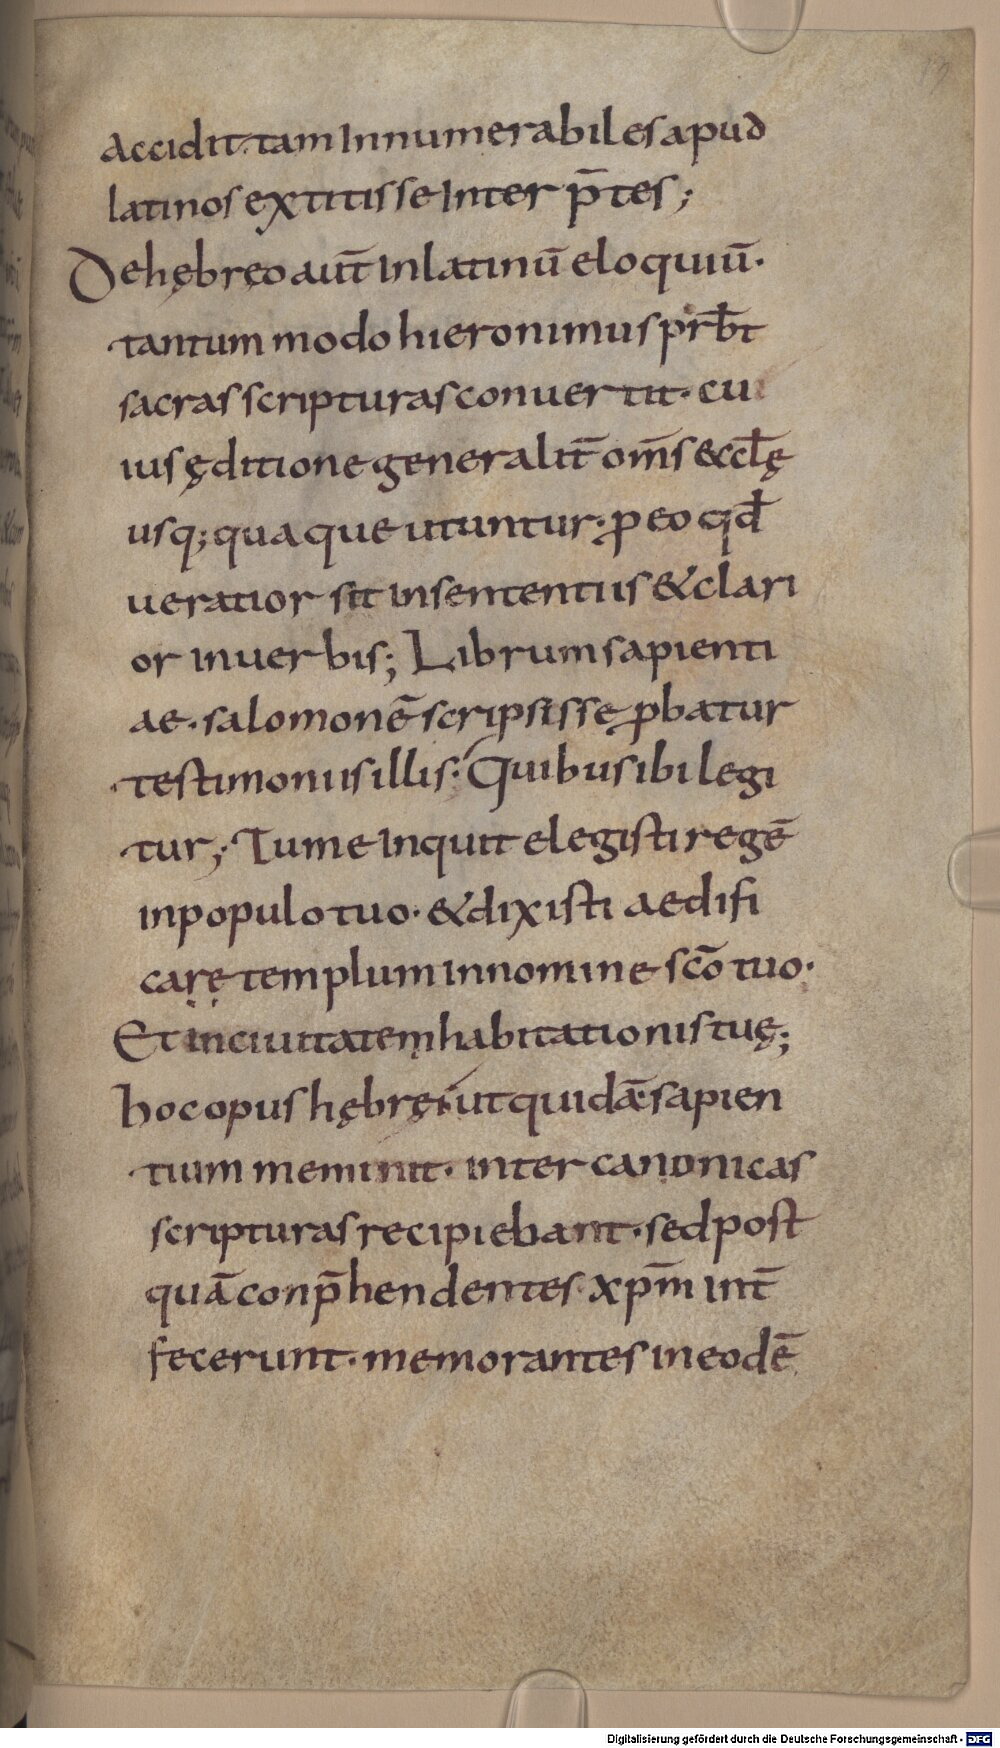 accidit. tam Innumerabiles apud
latinos extitisse Inter p̄tes;
De hębręo aut̄ In latinū eloquiū.
tantum modo hieronimus prb̄t
sacras scripturas conuertit. cu
ius ęditione generalit̄ om̄s &ccl̄ę
usq; quaque utuntur. ꝓ eo qd̄
ueratior sit in sententiis & clari
or in uerbis; Librum sapienti
ae. salomonē scripsissę ꝓbatur
testimoniis illis. Quibus ibi legi
tur; Tu me Inquit elegisti regē
in populo tuo. & dixisti aedifi
carę templum in nomine sc̄o tuo.
Et in ciuitatem habitationis tuę;
hoc opus hębręi ut quidā sapien
tium meminit. inter canonicas
scripturas recipiebant. sed post
quā conp̄hendentes xp̄m int̄
fecerunt. memorantes in eodē
Digitalisierung gefördert durch die Deutsche Forschungsgemeinschaft - DFG